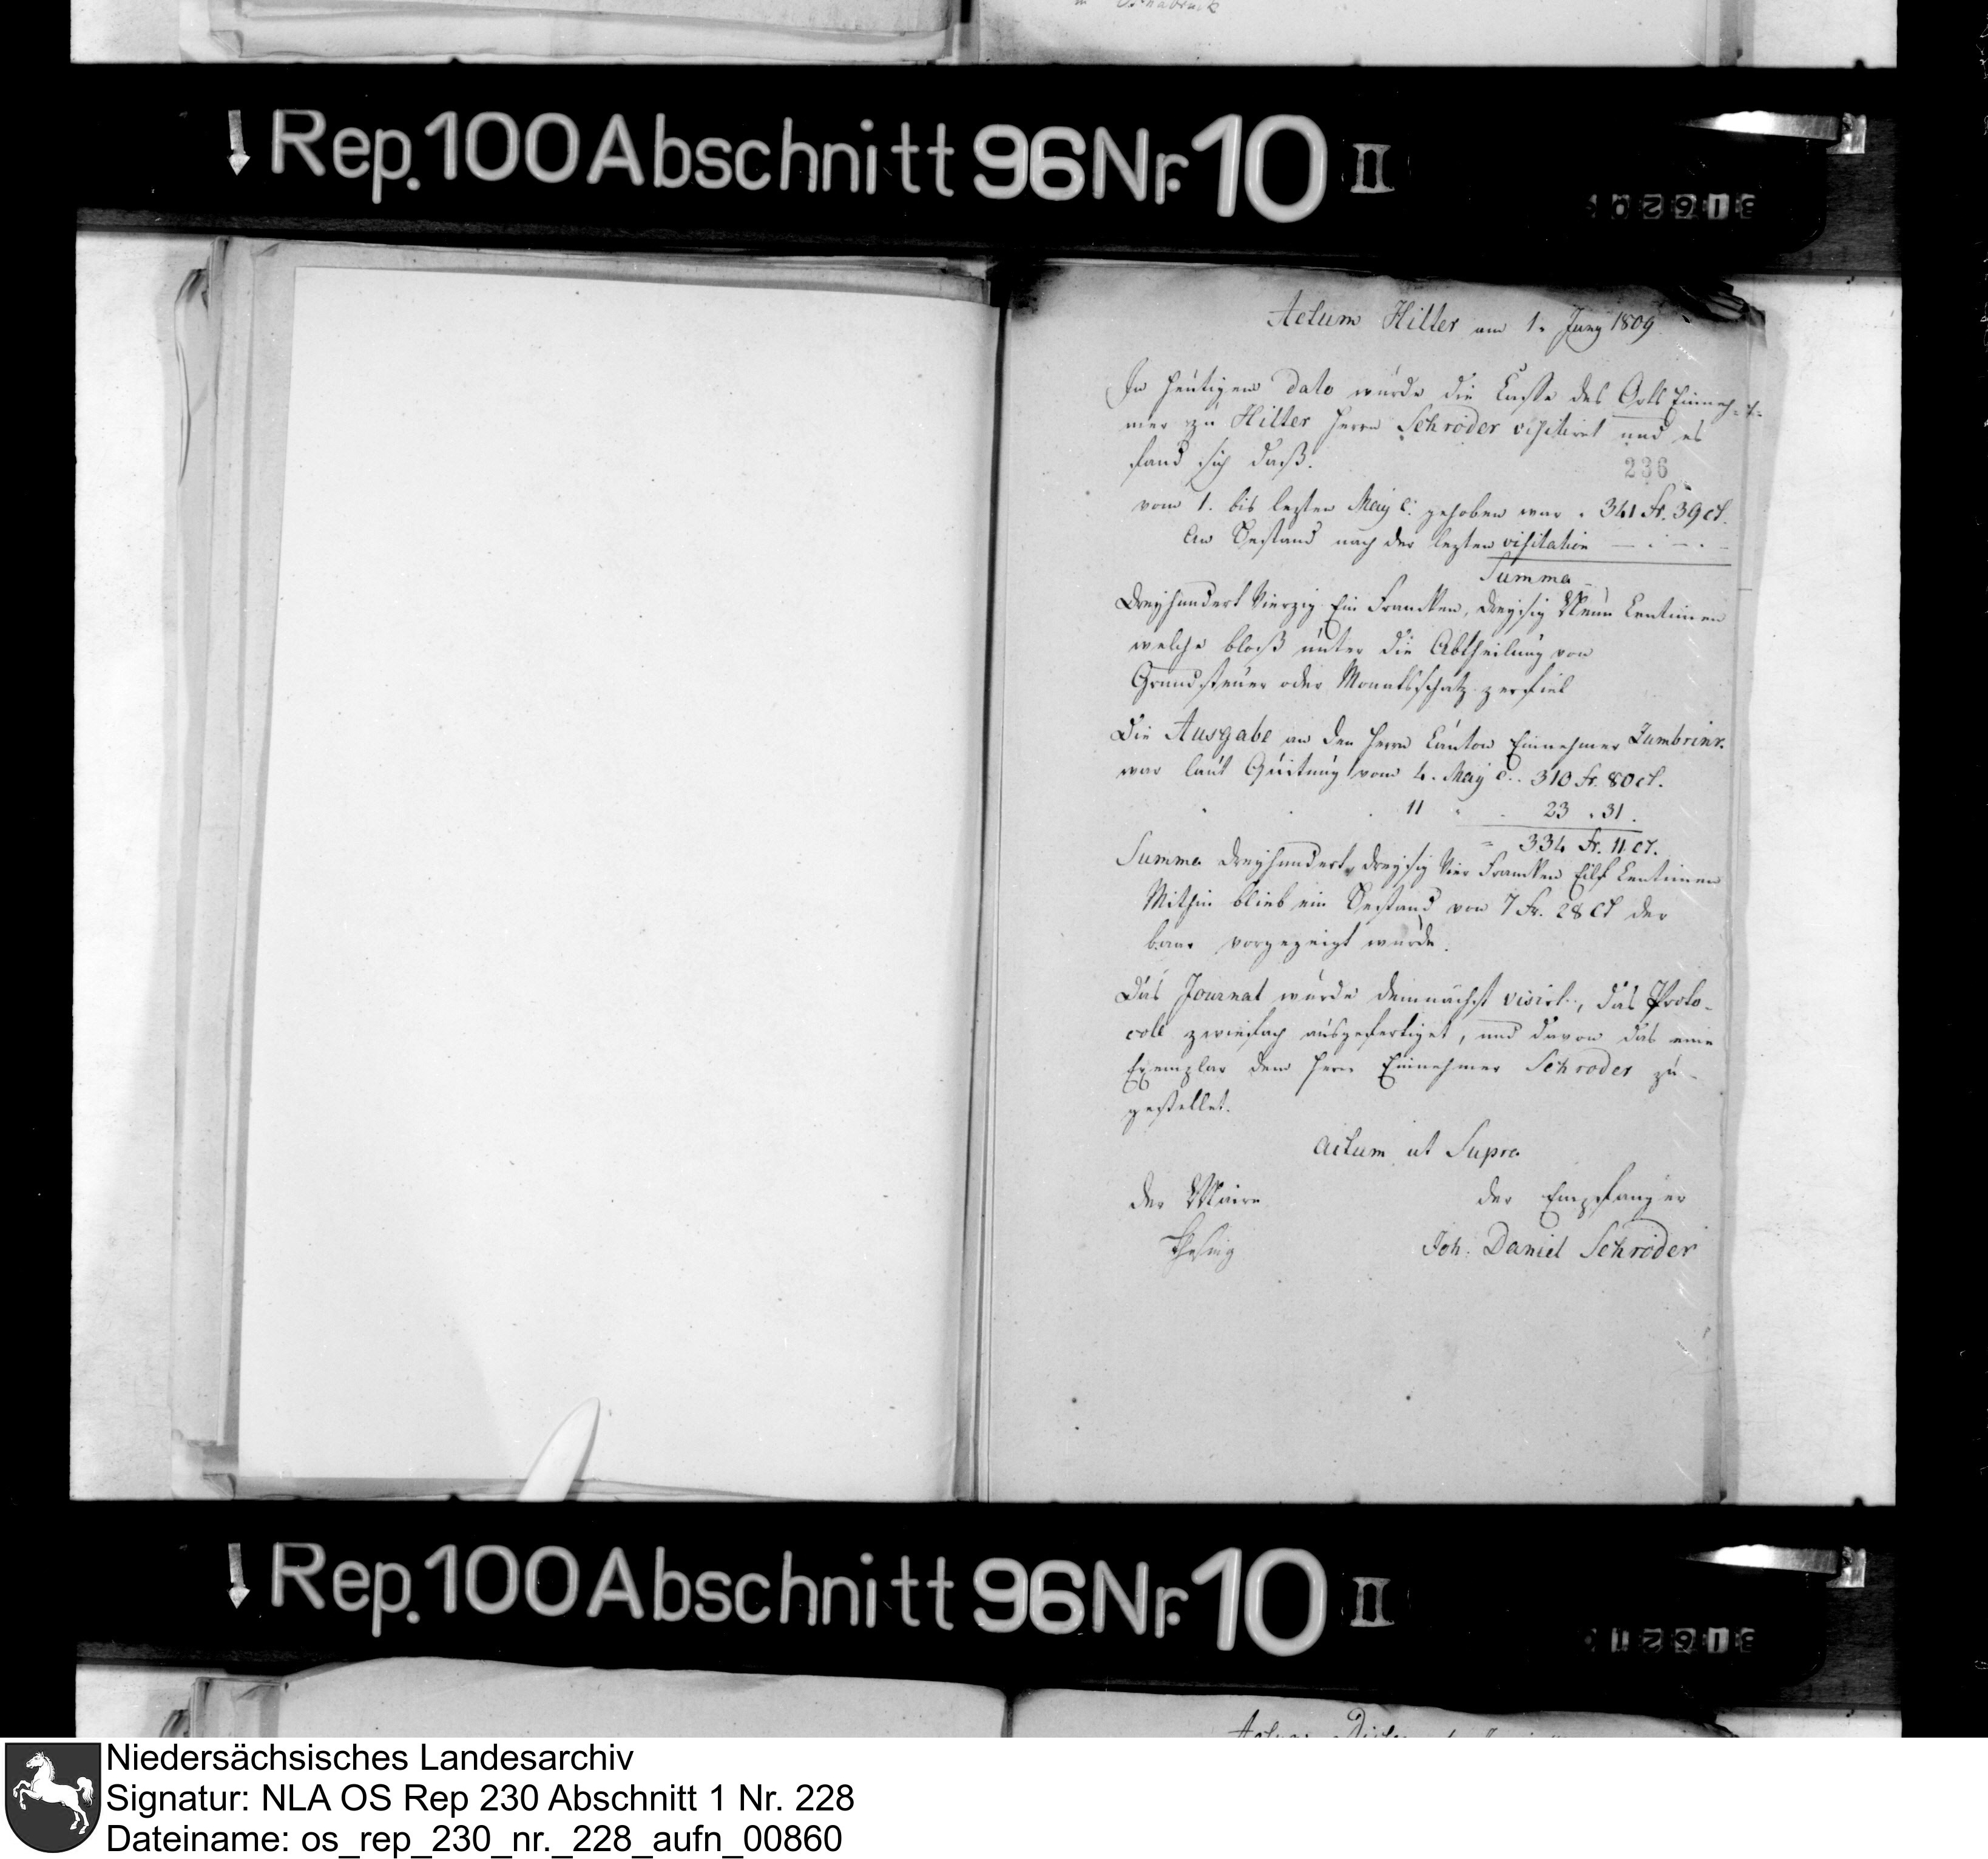 in Osnabruck
Rep. 100 Abschnitt 96 Nr. 10 II
31620
Actum Hilter am 1. Juny 1809
In heutigem Dato wurde die Casse des Orts Einneh-
mer zu Hilter Herrn Schröder visitiret und es
fand sich daß.
236
vom 1. bis lezten May c. gehoben war . 341 Fr. 39 ct.
An Bestand nach der lezten visitation — . — . —
Summa
Dreyhundert Vierzig Ein Francken, dreysig Neun Centimen
welche bloß unter die Abtheilung von
Grundsteuer oder Monatsschatz zerfiel
Die Ausgabe an den Herrn Canton Einnehmer Zumbrink.
war laut Quitung vom 4. May c. . 310 Fr. 80 ct.
11 " . 23 . 31 .
334 Fr. 11 ct.
Summa dreyhundert dreysig Vier Francken Eilf Centimen
Mithin blieb ein Bestand von 7 Fr. 28 Ct der
baar vorgezeigt wurde.
Das Journal wurde demnächst visirt, das Proto-
coll zwiefach ausgefertiget, und davon das eine
Exemplar dem Herrn Einnehmer Schroder zu-
gestellet.
Actum ut Supra
der Maire
der Empfanger
Joh: Daniel Schröder
Rep. 100 Abschnitt 96 Nr. 10 II
31621
Niedersächsisches Landesarchiv
Signatur: NLA OS Rep 230 Abschnitt 1 Nr. 228
Dateiname: os_rep_230_nr._228_aufn_00860